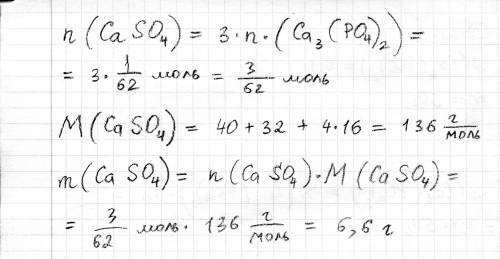 n (CaSO₄) = 3·n·(Ca₃(PO₄)₂) =
= 3·1/62 моль = 3/62 моль
M(CaSO₄) = 40 + 32 + 4·16 = 136 г/моль
m(CaSO₄) = n(CaSO₄)·M(CaSO₄) =
= 3/62 моль · 136 г/моль = 6,6 г